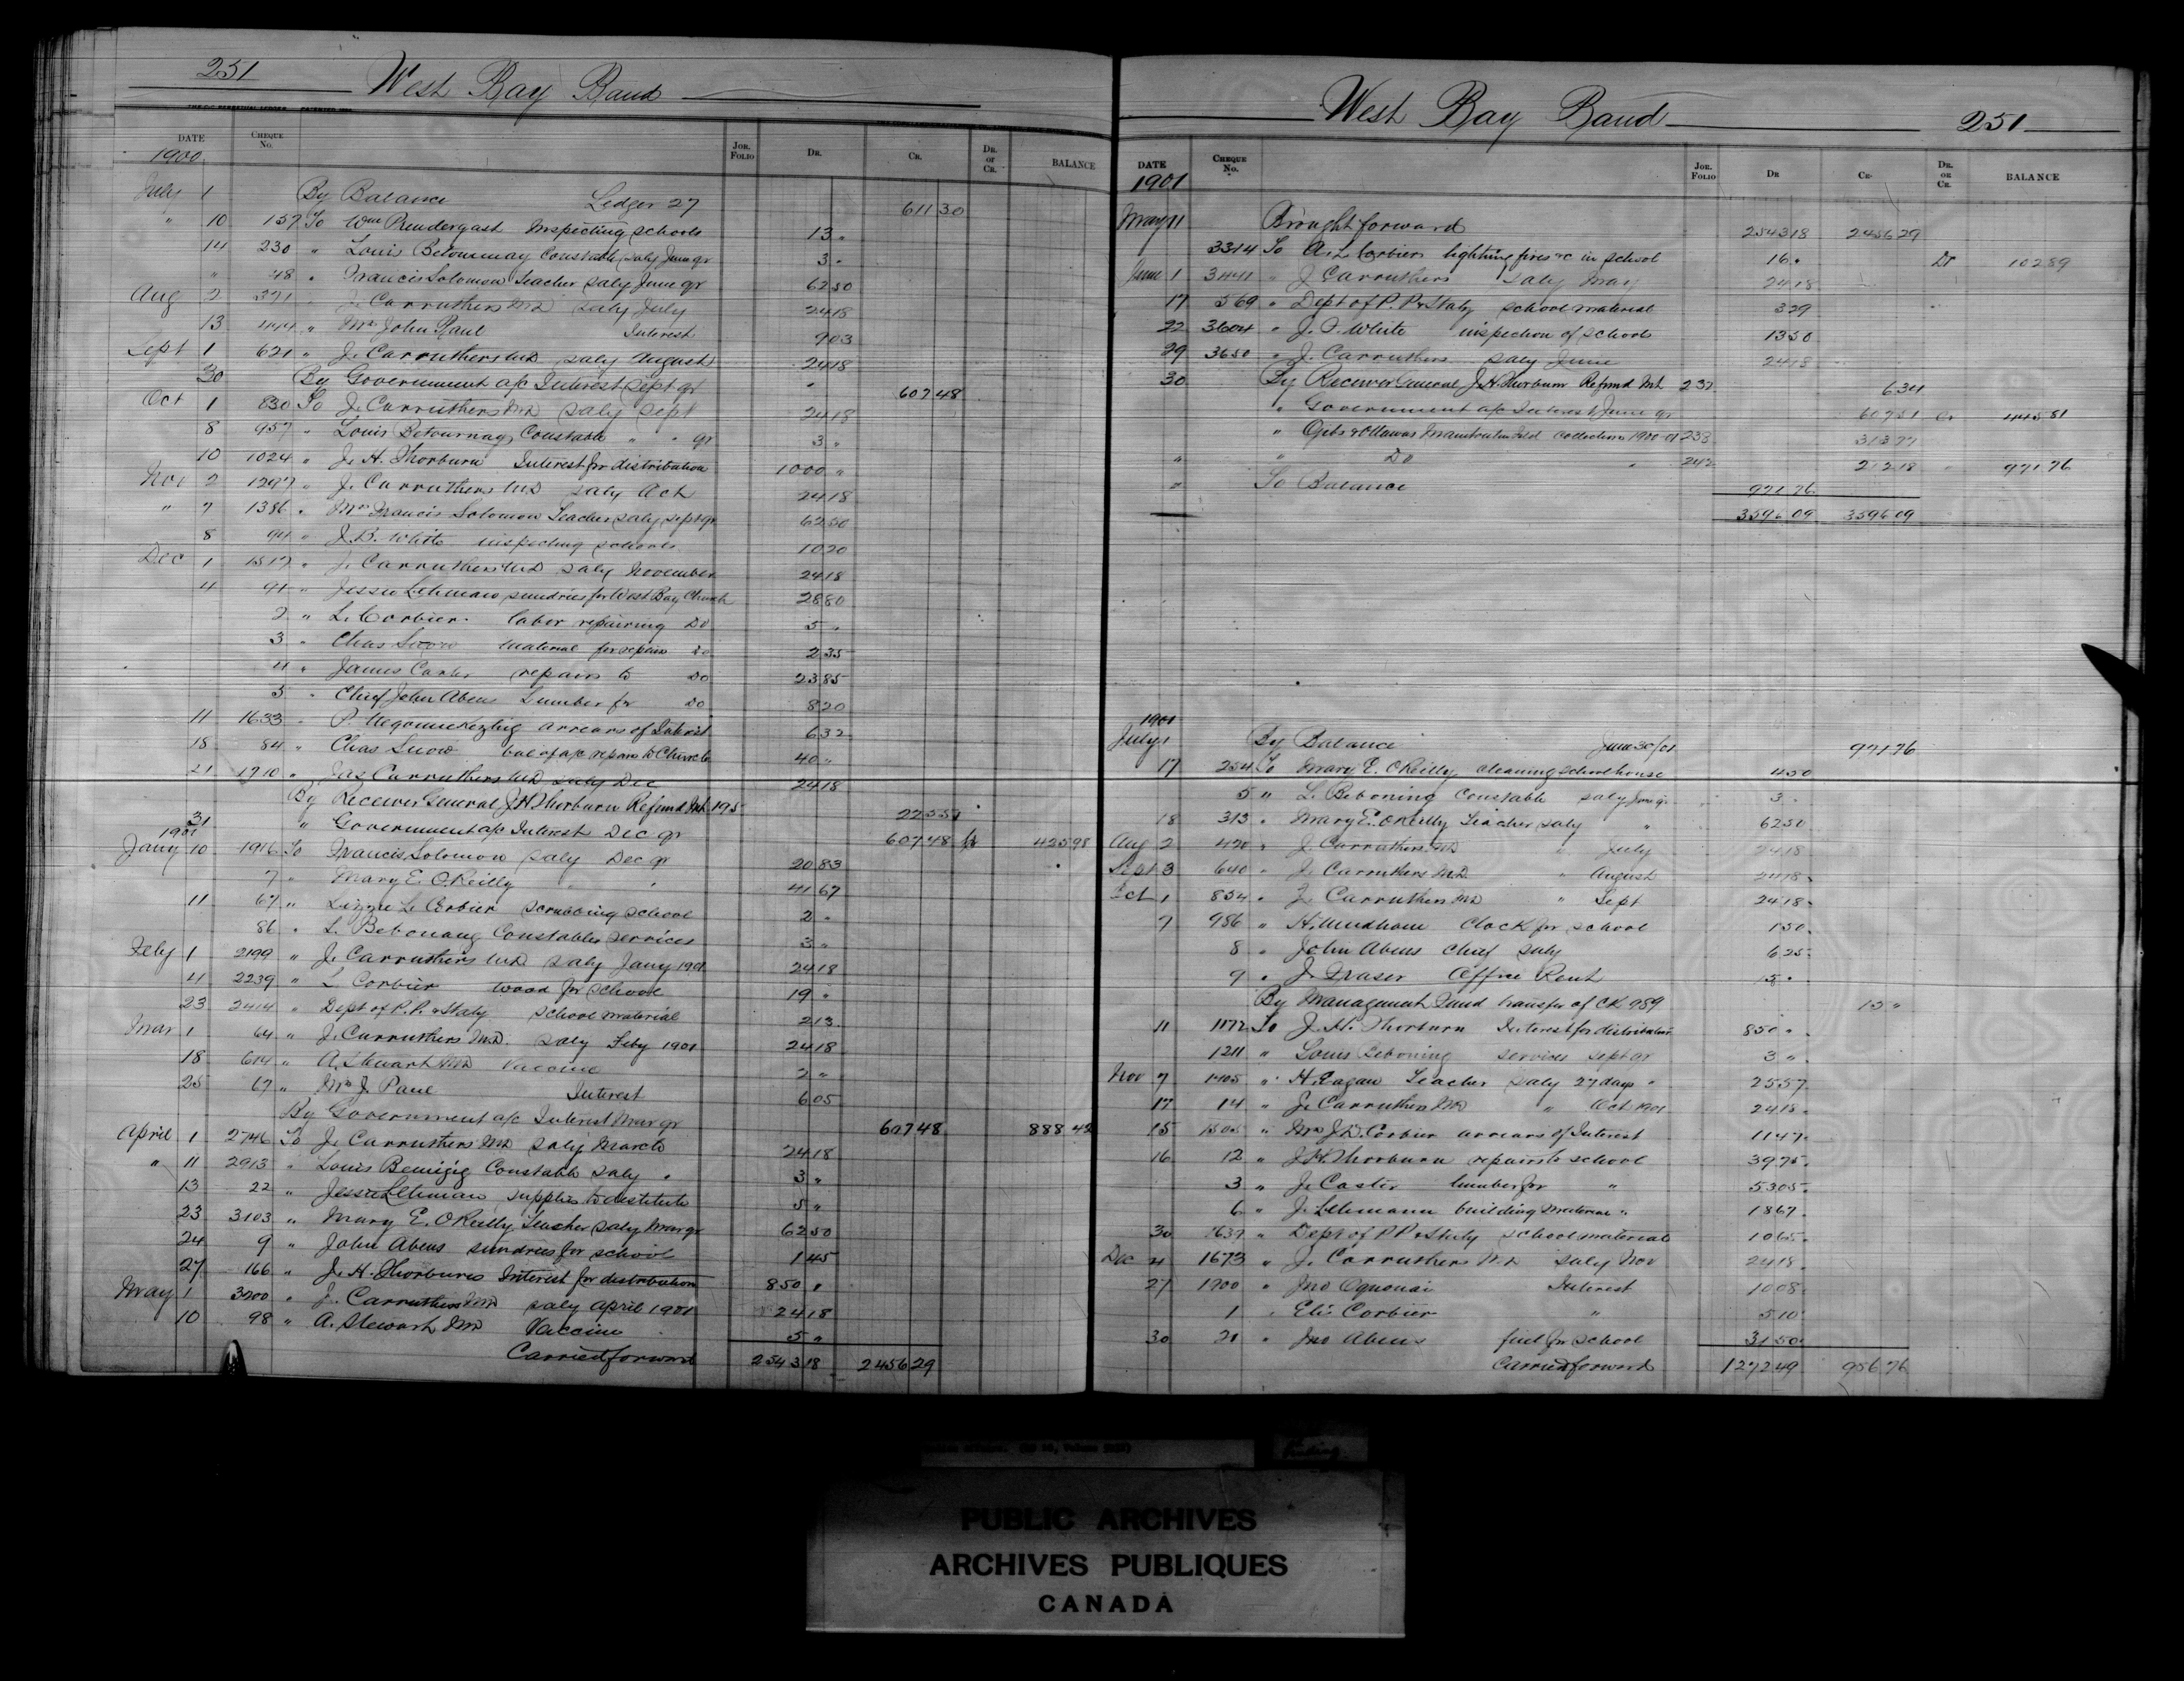 251 West Bay Band
DATE CHEQUE No. JOR. FOLIO DR. CR. DR. OR CR. BALANCE
1900
July 1 By Balance Ledger 27 611 30
" 10 157 To Wm Prendergast Inspecting schools 13 "
14 230 " Louis Betournay Constable saly June qr 3 "
" 48 " Francis Solomon Teacher saly June qr 62 50
Aug 2 371 " J. Carruthers MD saly July 24 18
13 444 " Mrs John Paul Interest 9 03
Sept 1 621 " J. Carruthers MD saly August 24 18
30 By Government a/c Interest Sept qr 607 48
Oct 1 830 To J. Carruthers MD saly Sept 24 18
8 957 " Louis Betournay Constable " " qr 3 "
10 1024 " J. H. Thorburn Interest for distribution 1000 "
Nov 2 1297 " J. Carruthers MD saly Oct 24 18
" 7 1386 " Mrs Francis Solomon Teacher saly sept qr 62 50
8 94 " J. B. White inspecting schools 10 20
Dec 1 1517 " J. Carruthers MD saly November 24 18
4 91 " Jessie Lehman sundries for West Bay Church 28 80
2 " L. Corbier labor repairing Do 5 "
3 " Chas Snow material for repairs Do 2 35
4 " James Carter repairs to Do 23 85
5 " Chief John Abens Lumber for Do 8 20
11 1633 " P. arrears of Interest 6 32
18 84 " Chas Snow bal of a/c repairs to Church 40 "
21 1710 " Jas Carruthers MD saly Dec 24 18
By Receiver General J H Thorburn Refund Int 195 22 55
31 " Government a/c Interest Dec qr 607 48 Cr 425 98
1901
Jany 10 1916 To Francis Solomon saly Dec qr 20 83
7 " Mary E. O'Reilly " " 41 67
11 67 " Lizzie L. Corbier scrubbing school 2 "
86 " L. Bebonang Constables services 3 "
Feby 1 2199 " J. Carruthers MD saly Jany 1901 24 18
4 2239 " L Corbier wood for school 19 "
23 2414 " Dept of P. P. & Staty school material 2 13
Mar 1 64 " J. Carruthers MD. saly Feby 1901 24 18
18 614 " A. Stewart MD Vaccine 2 "
25 67 " Mrs J. Paul Interest 6 05
By Government a/c Interest Mar qr 607 48 888 42
April 1 2746 To J. Carruthers MD saly March 24 18
" 11 2913 " Louis Constable saly " 3 "
13 22 " Jessie Lehman supplies to destitute 5 "
23 3103 " Mary E. O'Reilly Teacher saly Mar qr 62 50
24 9 " John Abens sundries for school 1 45
27 166 " J. H. Thorburn Interest for distribution 850 "
May 1 3200 " J. Carruthers MD saly April 1901 24 18
10 98 " A. Stewart MD Vaccine 5 "
Carried forward 2543 18 2456 29
West Bay Band 251
DATE CHEQUE No. JOR. FOLIO DR CR. DR. OR CR. BALANCE
1901
May 11 Brought forward 2543 18 2456 29
3314 To A. L. Corbier lighting fires &c in school 16 " Dr 102 89
June 1 3441 " J Carruthers saly May 24 18
17 569 " Dept of P. P & Staty school material 3 29
22 3604 " J. B. White inspection of schools 13 50
29 3650 " J. Carruthers saly June 24 18
30 By Receiver General J. H. Thorburn Refund Int 237 6 34
" Government a/c Interest June qr 607 51 Cr 445 81
" Ojibs & Ottawas Manitoulin Isld collections 1900-01 238 313 77
" " Do " 242 212 18 " 971 76
" To Balance 971 76
3596 09 3596 09
1901
July 1 By Balance June 30/01 971 76
17 254 To Mary E. O'Reilly cleaning schoolhouse 4 50
5 " L. Beboning Constable saly June qr 3 "
18 313 " Mary E. O'Reilly Teacher saly " 62 50
Aug 2 420 " J. Carruthers MD " July 24 18
Sept 3 640 " J. Carruthers MD " August 24 18
Oct 1 854 " J. Carruthers MD " Sept 24 18
7 986 " H. Clock for school 1 50
8 " John Abens Chief saly 6 25
9 " J. Fraser Office Rent 15 "
By Management Fund transfer of CK 989 15 "
11 1172 To J. H. Thorburn Interest for distribution 850 "
1211 " Louis Beboning services sept qr 3 "
Nov 7 1405 " H. Ragan Teacher saly 27 days " 25 57
17 14 " J. Carruthers MD " Oct 1901 24 18
15 1505 " Mrs J. D. Corbier arrears of Interest 11 47
16 12 " J. H. Thorburn repairs to school 39 75
3 " J. Caster lumber for " 53 05
6 " J. Lehmann building material " 18 67
30 1637 " Dept of P P & Staty school material 10 65
Dec 4 1673 " J. Carruthers MD saly Nov 24 18
27 1900 " Jno Interest 10 08
1 " Eli Corbier " 5 10
30 21 " Jno Abens fuel for school 31 50
Carried forward 1272 49 986 76
PUBLIC ARCHIVES
ARCHIVES PUBLIQUES
CANADA